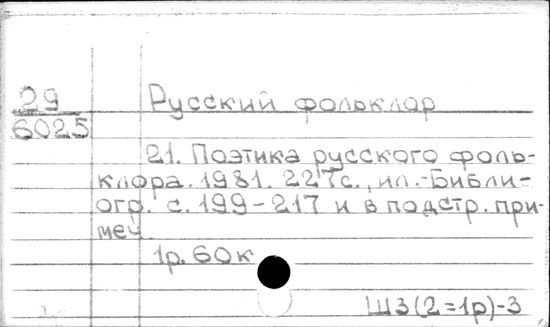 29
6025
Русский фольклор
21. Поэтика русского фоль-
клора. 1981. 227с., ил.-Библи-
огр. с. 199-217 и в подстр. при-
меч.
1р. 60к
Ш3(2=1р)-3